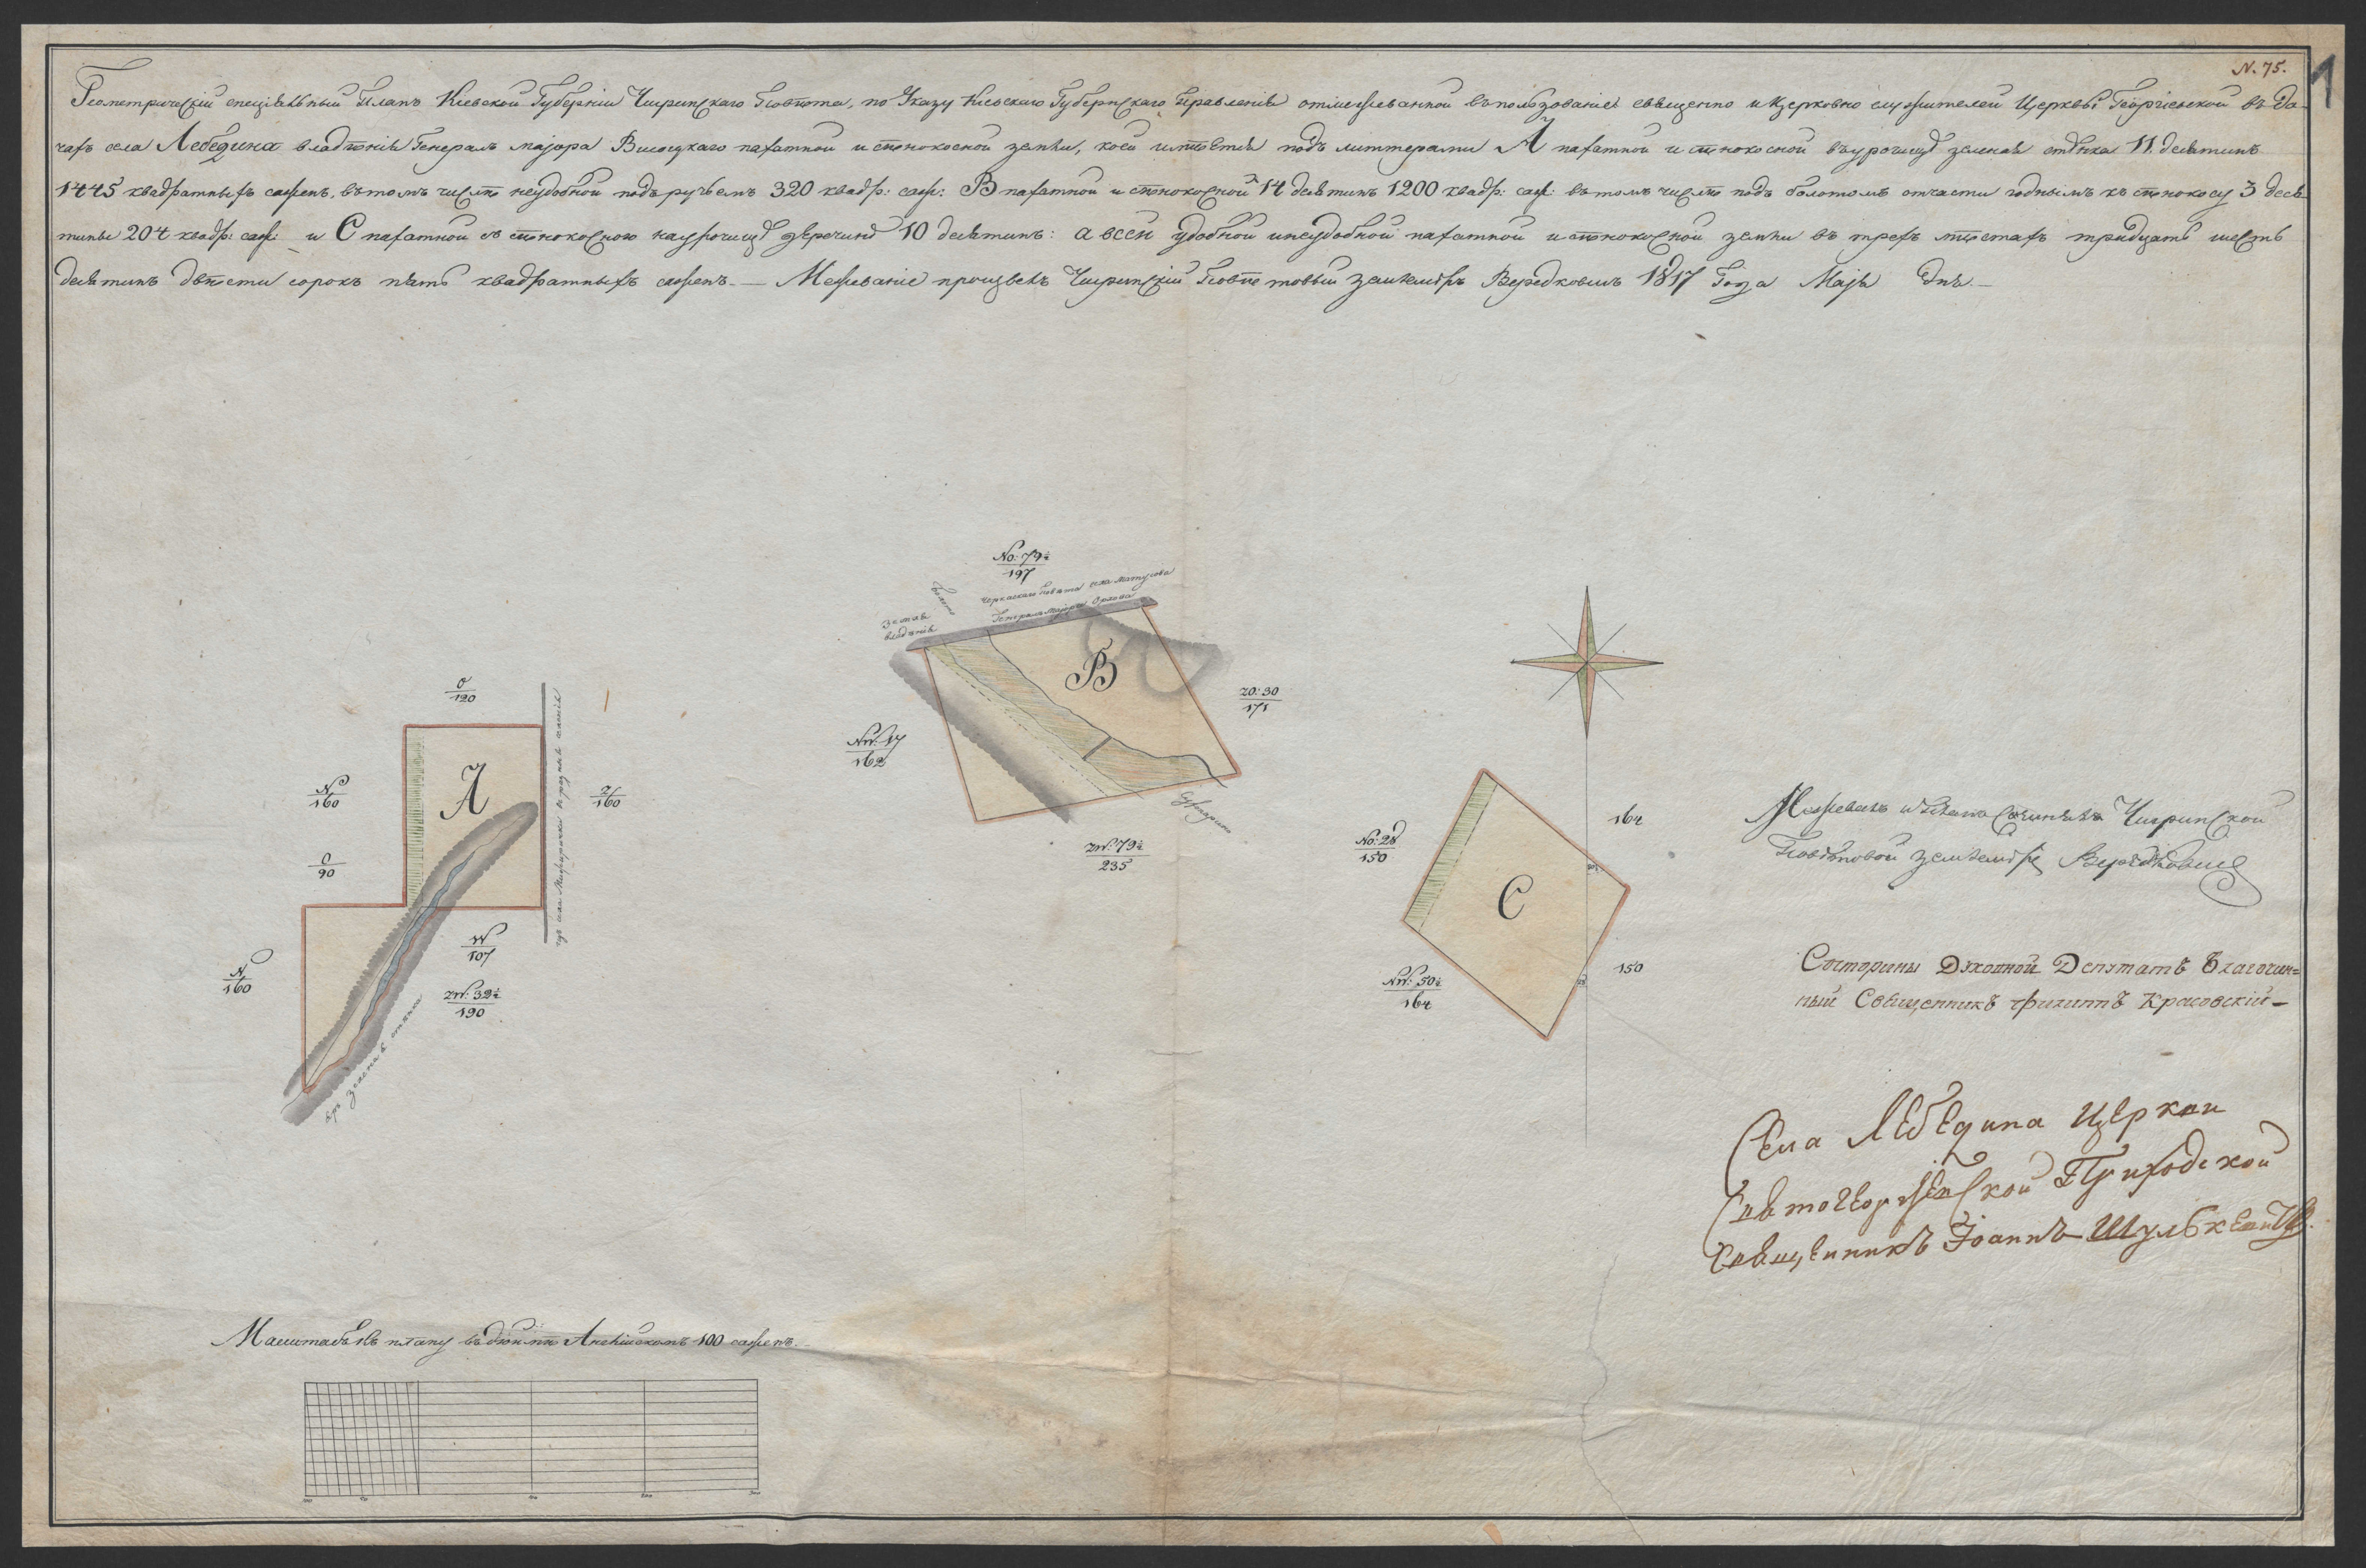 N. 75.
1
Геометрическій спеціяльный Планъ Кіевской Губерніи Чигринскаго Повѣта, по Указу Кіевскаго Губернскаго Правленія отмежеванной въ пользованіе священно и церковно служителей Церквы Георгіевской въ да-
чахъ села Лебедина владѣнія Генералъ маіора Высоцкаго пахатной и сѣнокосной земли, коей имѣется подъ литтерами А пахатной и сѣнокосной въ урочищѣ зеленая 11. десятинъ
1445 квадратныхъ саженъ, въ томъ числѣ неудобной подъ ручьемъ 320 квадр: саж: В пахатной и сѣнокосной 14 десятинъ 1200 квадр: саж: въ томъ числѣ подъ болотомъ отчасти годнымъ къ сѣнокосу 3 деся-
тины 204 квадр: саж: и С пахатной съ сѣнокосною на урочищѣ 10 десятинъ: а всей удобной и неудобной пахатной и сѣнокосной земли въ трехъ мѣстахъ тридцать шесть
десятинъ двѣсти сорокъ пять квадратныхъ саженъ. — Межеваніе произвелъ Чигринскій Повѣтовый Землемѣръ 1817 Года Маія Дня. —
No: 79½
197
Болото
Черкаскаго Повѣта села Матусова
Земля
владѣнія
Генералъ Маіора Орлова
В
ZO: 30
171
NW: 17
162
ZW: 79½
235
O
120
А
N
160
Z
160
O
90
W
107
N
160
ZW: 32½
190
Яръ Зеленая
164
No: 28
150
С
150
NW: 50½
164
Межевалъ и планъ сочинялъ Чигринской
Повѣтовой землемѣръ
Состороны Духовной Депутатъ Благочин=
ный Священникъ Филиппъ Красовскій —
Села Лебедина Церкви
Святогеоргіевской Приходской
Священникъ Іоаннъ
Масштабъ къ плану въ дюймѣ Англійскомъ 100 саженъ.